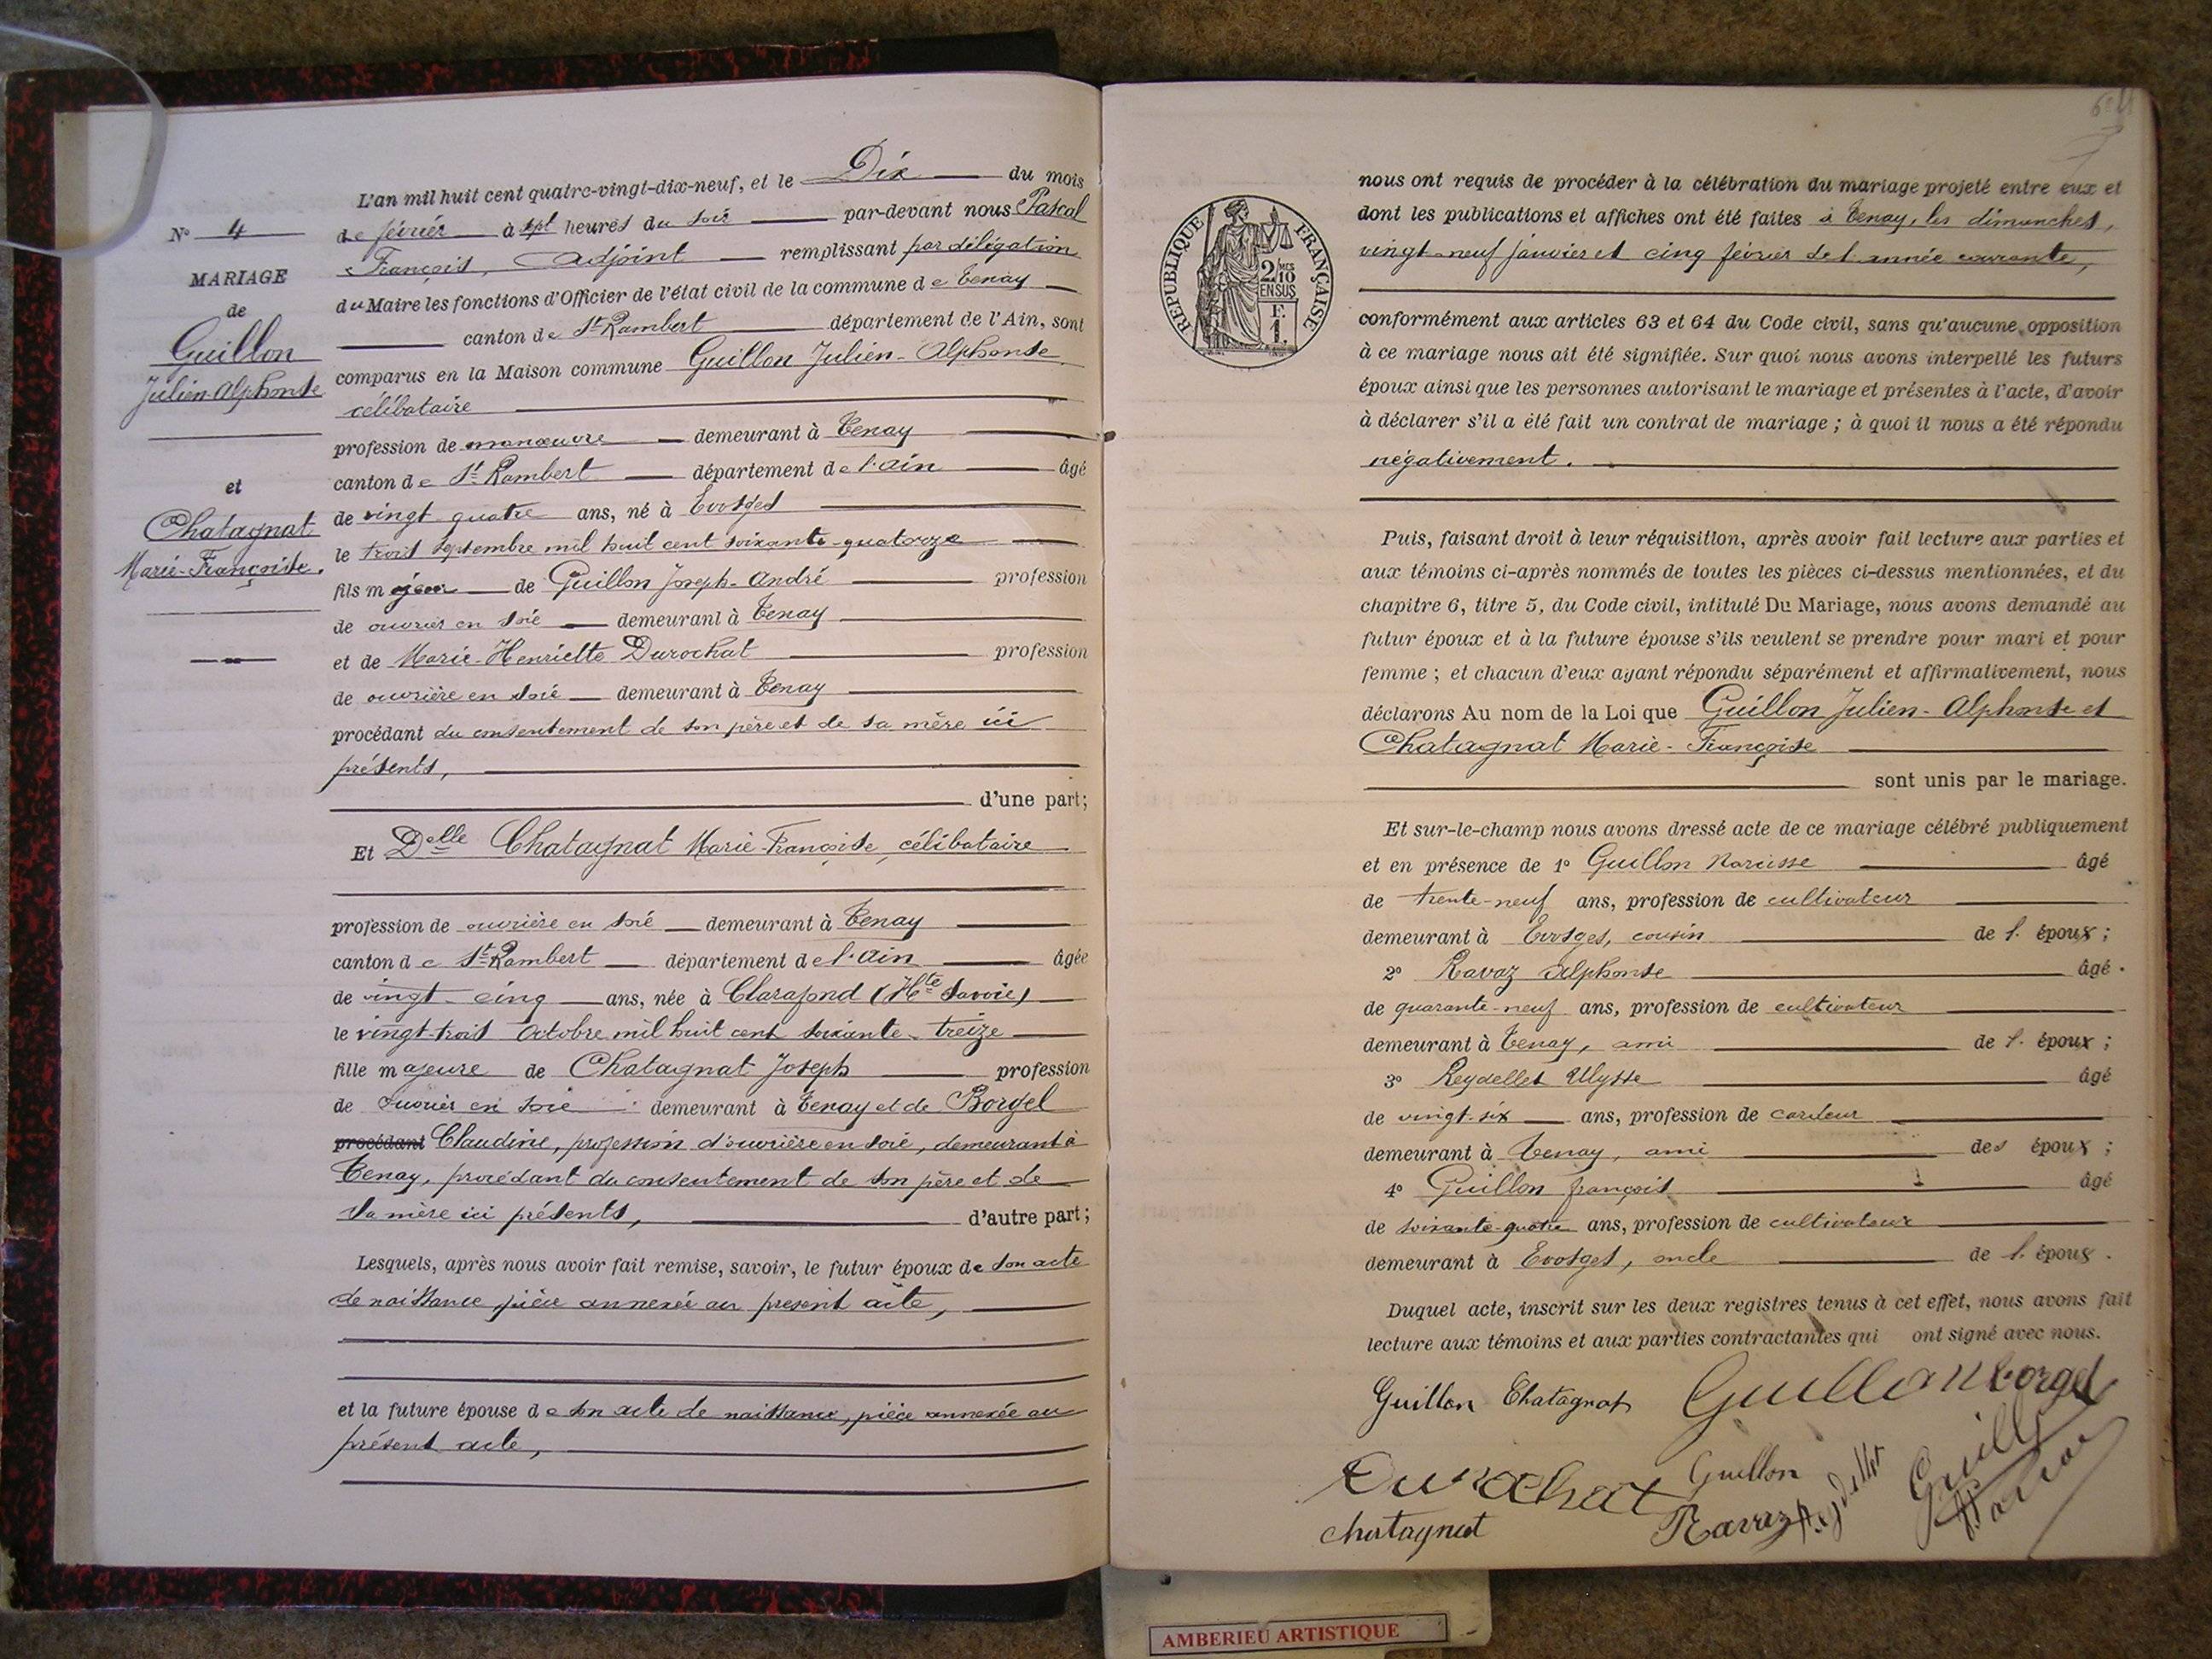 N° 4
MARIAGE
de
Guillon
Julien-Alphonse
et
Chatagnat
Marie-Françoise.
L'an mil huit cent quatre-vingt-dix-neuf, et le Dix du mois
de février à sept heures du soir par-devant nous Pascal
François, Adjoint remplissant par délégation
du Maire les fonctions d'Officier de l'état civil de la commune de Tenay
canton de St Rambert département de l'Ain, sont
comparus en la Maison commune Guillon Julien-Alphonse,
célibataire
profession de manœuvre demeurant à Tenay
canton de St Rambert département de l'ain âgé
de vingt quatre ans, né à Evosges
le trois septembre mil huit cent soixante-quatorze
fils majeur de Guillon Joseph-André profession
de ouvrier en soie demeurant à Tenay
et de Marie-Henriette Durochat profession
de ouvrière en soie demeurant à Tenay
procédant du consentement de son père et de sa mère ici
présents,
d'une part;
Et Delle Chatagnat Marie-Françoise, célibataire
profession de ouvrière en soie demeurant à Tenay
canton de St Rambert département de l'ain âgée
de vingt-cinq ans, née à Clarafond (Hte Savoie)
le vingt-trois Octobre mil huit cent soixante-treize
fille majeure de Chatagnat Joseph profession
de ouvrier en soie demeurant à Tenay et de Borgel
procédant Claudine, profession d'ouvrière en soie, demeurant à
Tenay, procédant du consentement de son père et de
sa mère ici présents, d'autre part;
Lesquels, après nous avoir fait remise, savoir, le futur époux de son acte
de naissance, pièce annexée au présent acte,
et la future épouse de son acte de naissance, pièce annexée au
présent acte,
RÉPUBLIQUE FRANÇAISE
2/10 MES
EN SUS
F.
1.
nous ont requis de procéder à la célébration du mariage projeté entre eux et
dont les publications et affiches ont été faites à Tenay, les dimanches,
vingt-neuf janvier et cinq février de l'année courante,
conformément aux articles 63 et 64 du Code civil, sans qu'aucune opposition
à ce mariage nous ait été signifiée. Sur quoi nous avons interpellé les futurs
époux ainsi que les personnes autorisant le mariage et présentes à l'acte, d'avoir
à déclarer s'il a été fait un contrat de mariage ; à quoi il nous a été répondu
négativement.
Puis, faisant droit à leur réquisition, après avoir fait lecture aux parties et
aux témoins ci-après nommés de toutes les pièces ci-dessus mentionnées, et du
chapitre 6, titre 5, du Code civil, intitulé Du Mariage, nous avons demandé au
futur époux et à la future épouse s'ils veulent se prendre pour mari et pour
femme ; et chacun d'eux ayant répondu séparément et affirmativement, nous
déclarons Au nom de la Loi que Guillon Julien-Alphonse et
Chatagnat Marie-Françoise
sont unis par le mariage.
Et sur-le-champ nous avons dressé acte de ce mariage célébré publiquement
et en présence de 1° Guillon Narcisse âgé
de trente-neuf ans, profession de cultivateur
demeurant à Evosges, cousin de l'époux ;
2° Ravaz Alphonse âgé
de quarante-neuf ans, profession de cultivateur
demeurant à Tenay, ami de l'époux ;
3° Reydellet Ulysse âgé
de vingt-six ans, profession de cardeur
demeurant à Tenay, ami des époux ;
4° Guillon françois âgé
de soixante-quatre ans, profession de cultivateur
demeurant à Evosges, oncle de l'époux.
Duquel acte, inscrit sur les deux registres tenus à cet effet, nous avons fait
lecture aux témoins et aux parties contractantes qui ont signé avec nous.
Guillon Chatagnat Guillon borgel
Durochat Guillon
chatagnat Ravaz Reydellet
AMBERIEU ARTISTIQUE